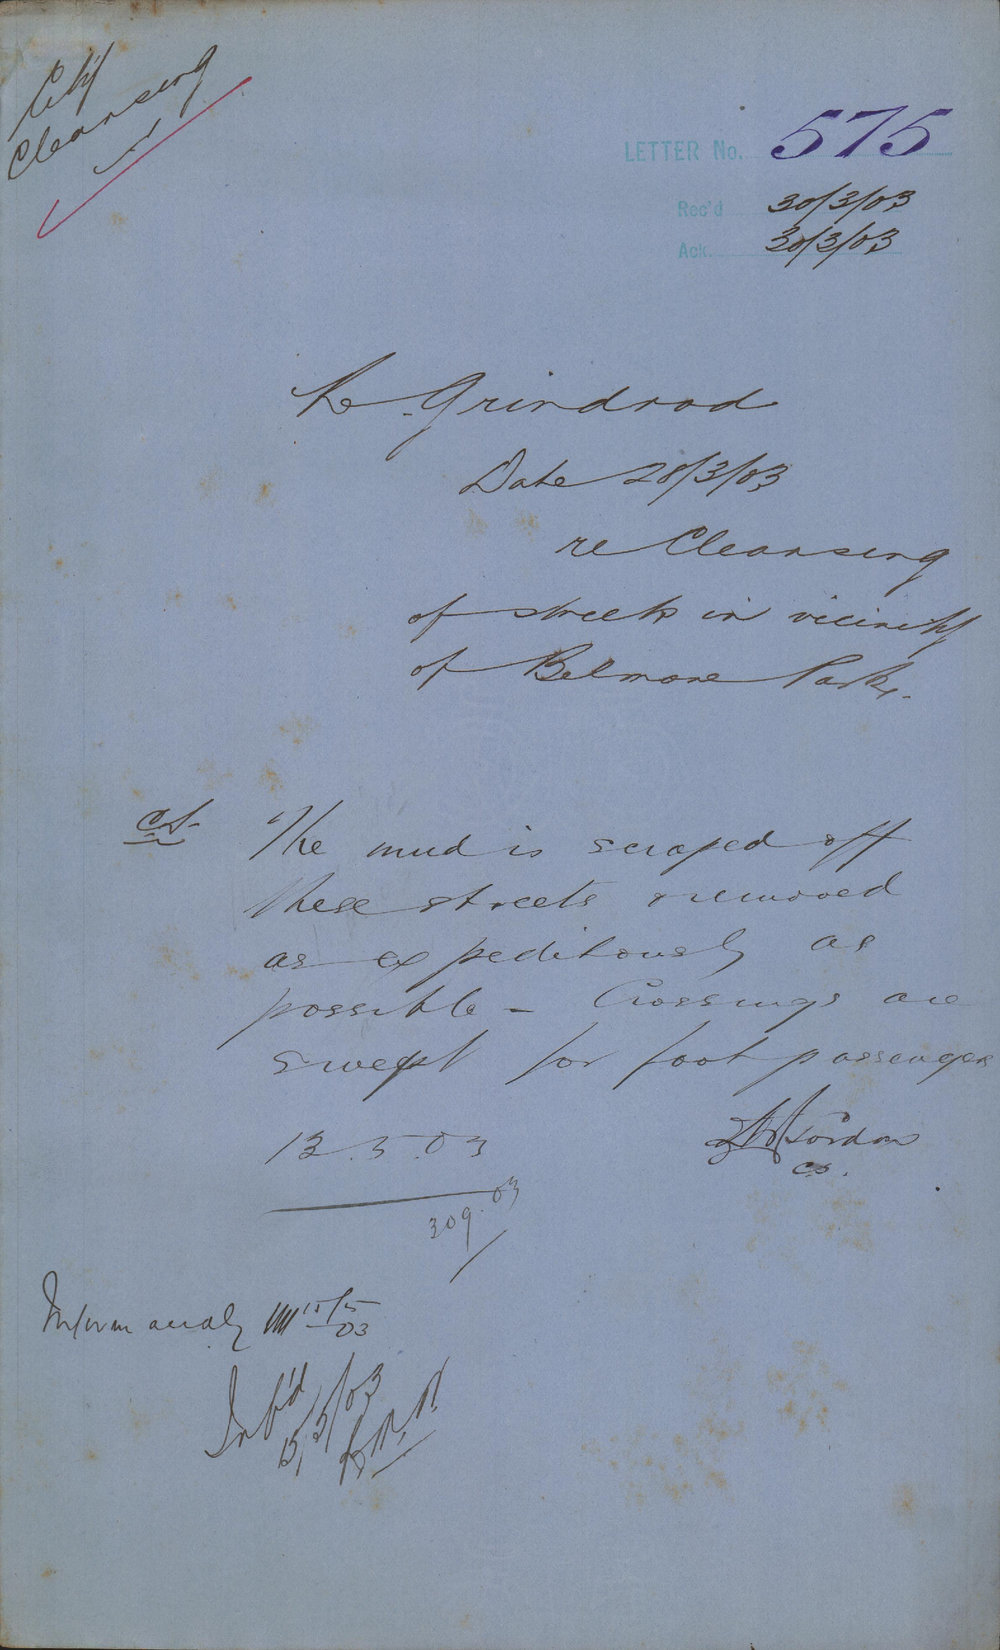 City
Cleansing
LETTER No. 575
Rec'd 30/3/03
Ack. 30/3/03
Grindrod
Date 28/3/03
re Cleansing
of streets in vicinity
of Belmore Park.
C.S. The mud is scraped off
these streets & removed
as expeditiously as
possible - Crossings are
swept for foot passengers
13.5.03
Gordon
C.S.
309.03
Inform accdly 15/5/03
Inf'd
15/5/03